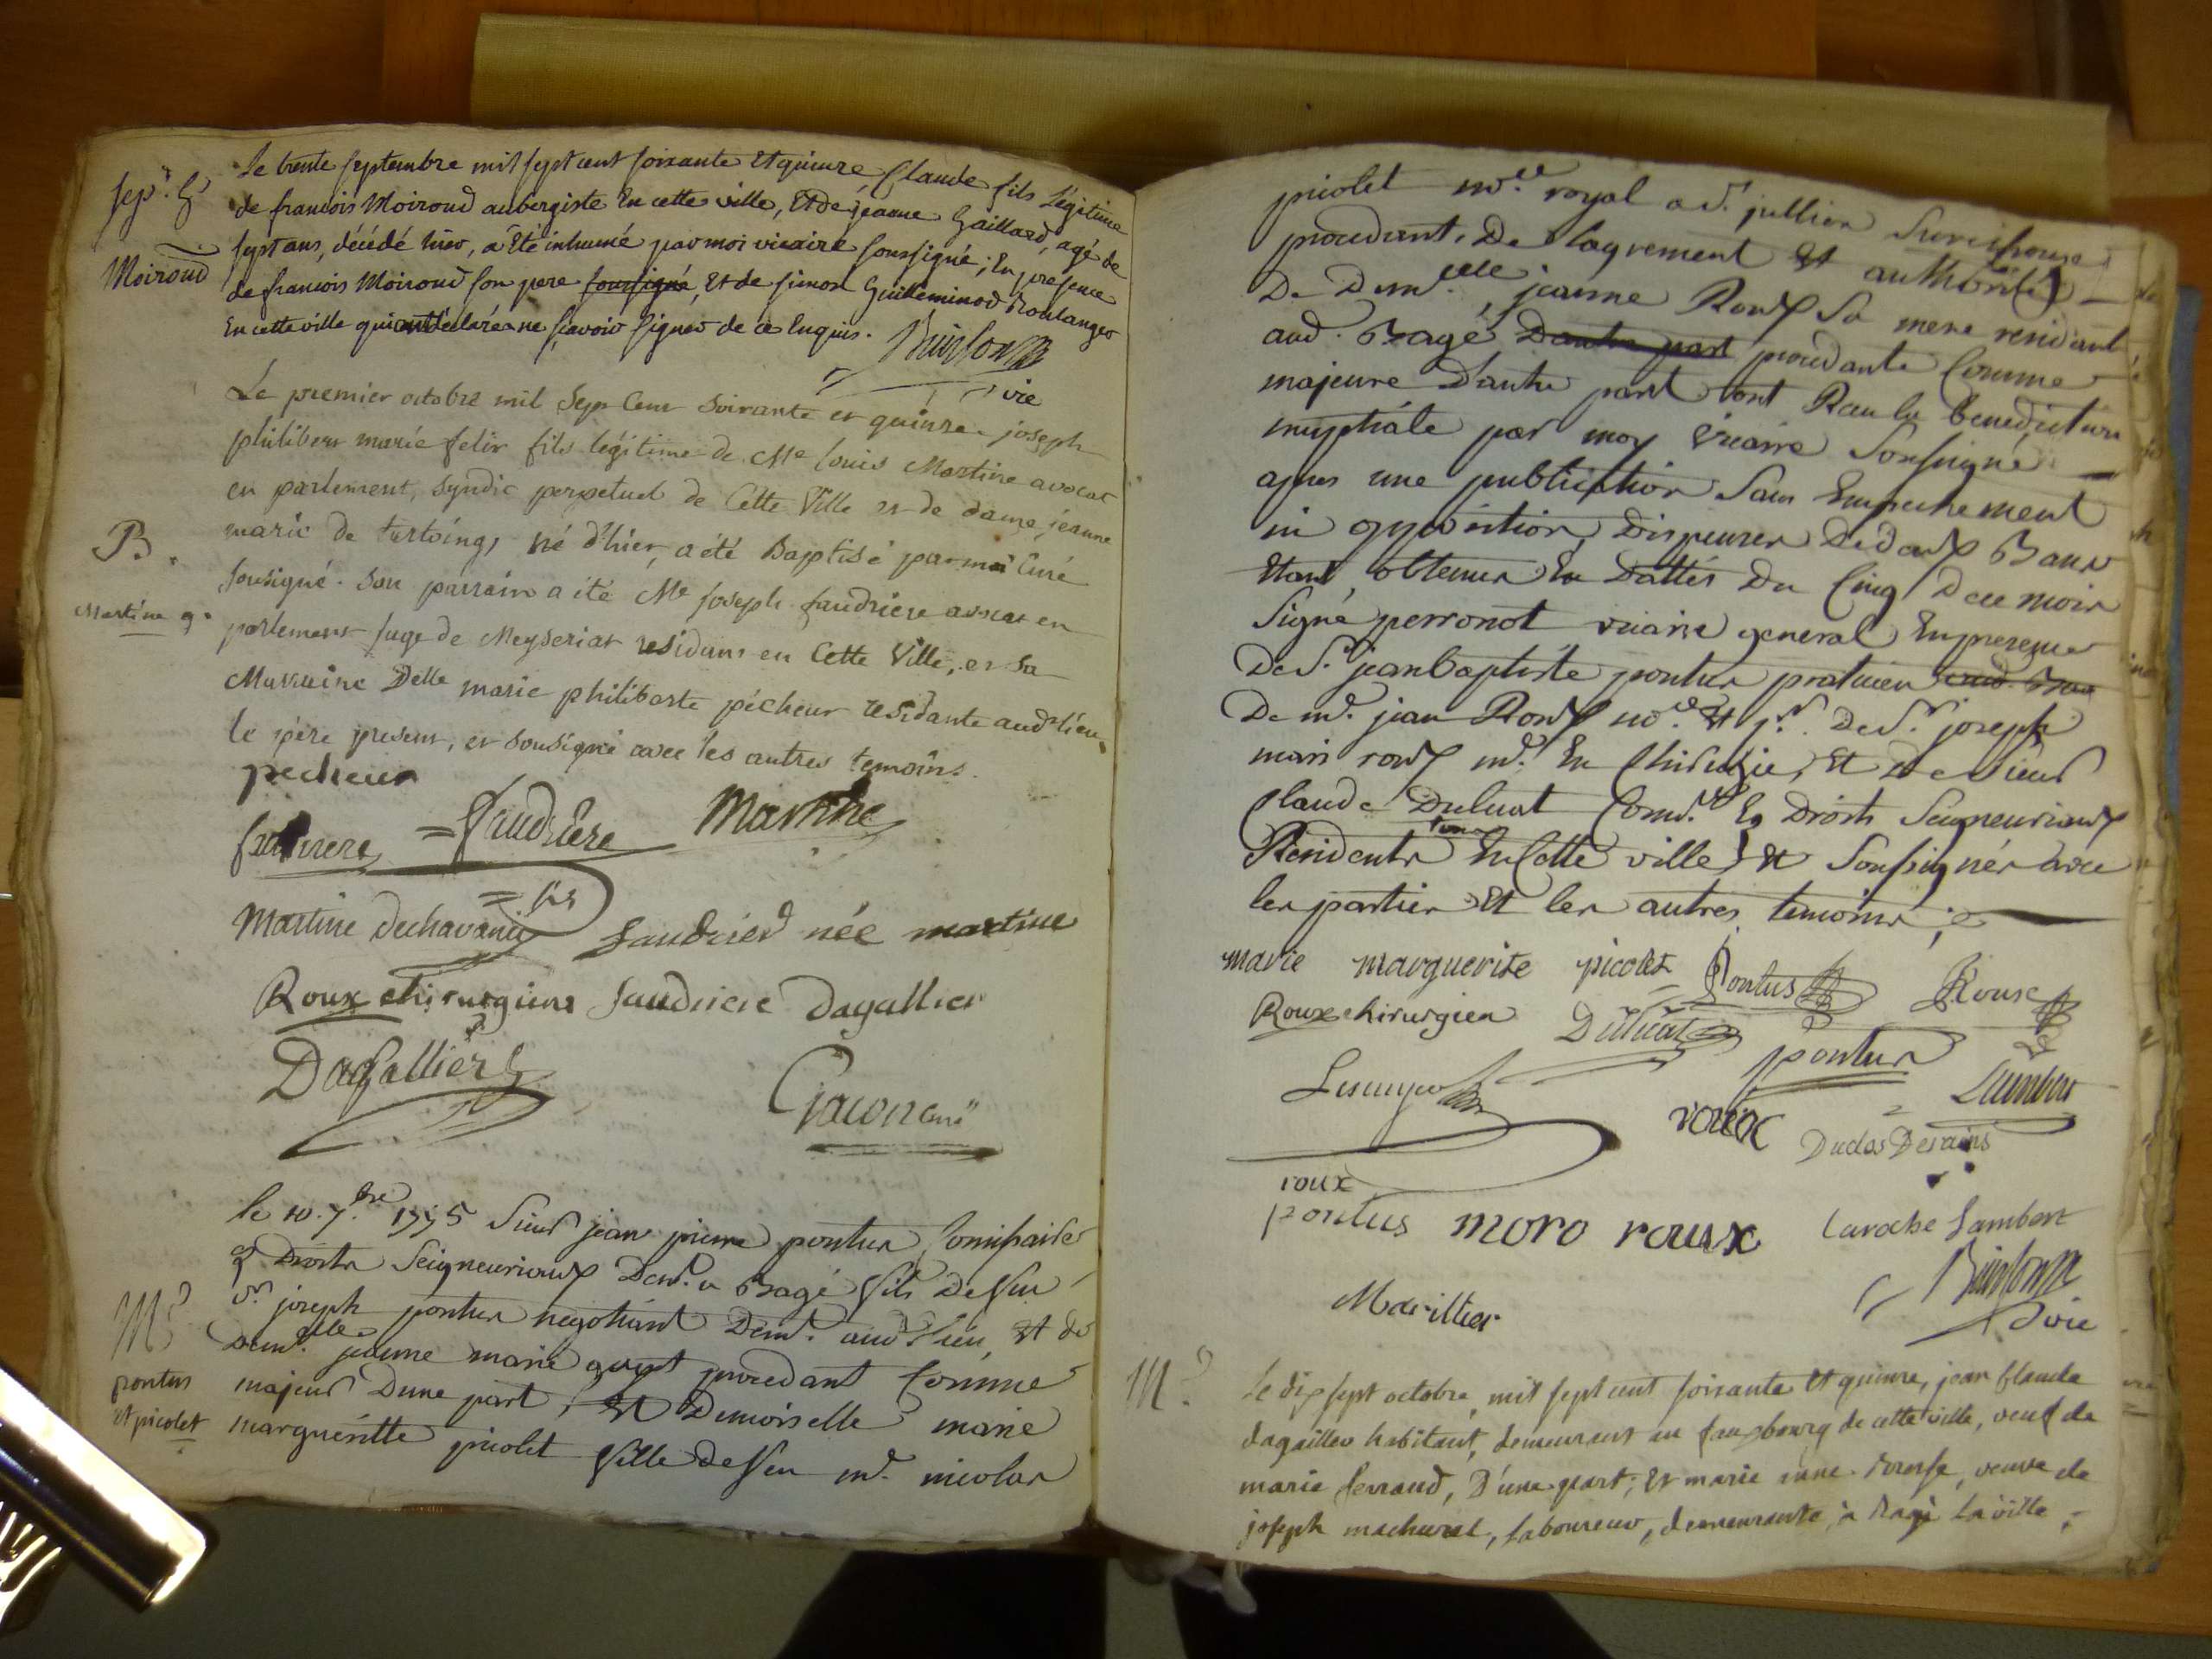 Sep.re G.s
Moiroud
Le trente septembre mil sept cent soixante et quinze, Claude fils légitime
de francois Moiroud aubergiste en cette ville, et de jeanne Gaillard, agé de
sept ans, décédé hier, a été inhumé par moi vicaire soussigné; en presence
de francois Moiroud son pere soussigné, et de simon Guilleminod Boulanger
en cette ville qui ont déclaré ne sçavoir signer de ce enquis.
Buisson
vic
B.
Martine g.
Le premier octobre mil Sept Cent Soixante et quinze joseph
philibert marie felix fils légitime de Me louis Martine avocat
en parlement, syndic perpetuel de Cette Ville et de dame jeanne
marie de tertoing, né d'hier, a été Baptisé par moi Curé
sousigné. Son parrain a été Me joseph faudriere avocat en
parlement juge de Meyseriat residant en Cette Ville, et sa
Maraine Delle marie philiberte pécheur residante aud. lieu.
le père present, et sousigné avec les autres temoins.
pecheur
= faudriere Martine
= fils
Martine dechavanie faudrier née martine
Roux chirurgiens faudriere Dagallier
Dagallier
Gacon curé
M.
pontus
et picolet
le 10. 7.bre 1775 Sieur jean pierre pontus Comissaire
es Droits Seigneuriaux Dem.t a Bagé fils de feu
S.r joseph pontus negotiant Dem.t aud. lieu, et de
Dem.elle jeanne marie procedant Comme
majeur Dune part, et Demoiselle marie
marguéritte picolet fille de feu m.e nicolas
picolet no.re royal a S.t jullien Sur
procedant De lagrement et authorité
De Dem.elle jeanne Roux Sa mere residant
aud. Bagé Dautre part procedante Comme
majeure D'autre part ont Recu la benediction
nuptiale par moy vicaire Soussigné
apres une publication Sans Empechement
ni opposition, Dispenses de deux Bans
étant obtenues en Dattes Du Cinq Dece mois
Signé perronot vicaire general En presence
De S.r jean baptiste pontus praticien
De m.e jean Roux no.re et p.r De S.r joseph
marc roux m.e en Chirurgie, et de Sieur
Claude Duluat Com.re Es Droits Seigneuriaux
Residents tous En Cette ville, et Soussignés avec
les parties et les autres temoins;
marie marguerite picolet Pontus Roux
Roux chirurgien Duluat
pontus
Lambert
roux Duclos Desains
roux
pontus moro roux Laroche Lambert
Marillier
Buisson
vic
M.
Le dix sept octobre, mil sept cent soixante et quinze, jean Claude
dagallier habitant, demeurant au fauxbourg de cette ville, veuf de
marie ferraud, D'une part; Et marie anne, veuve de
joseph machurat, laboureur, demeurante à Bagé la ville,